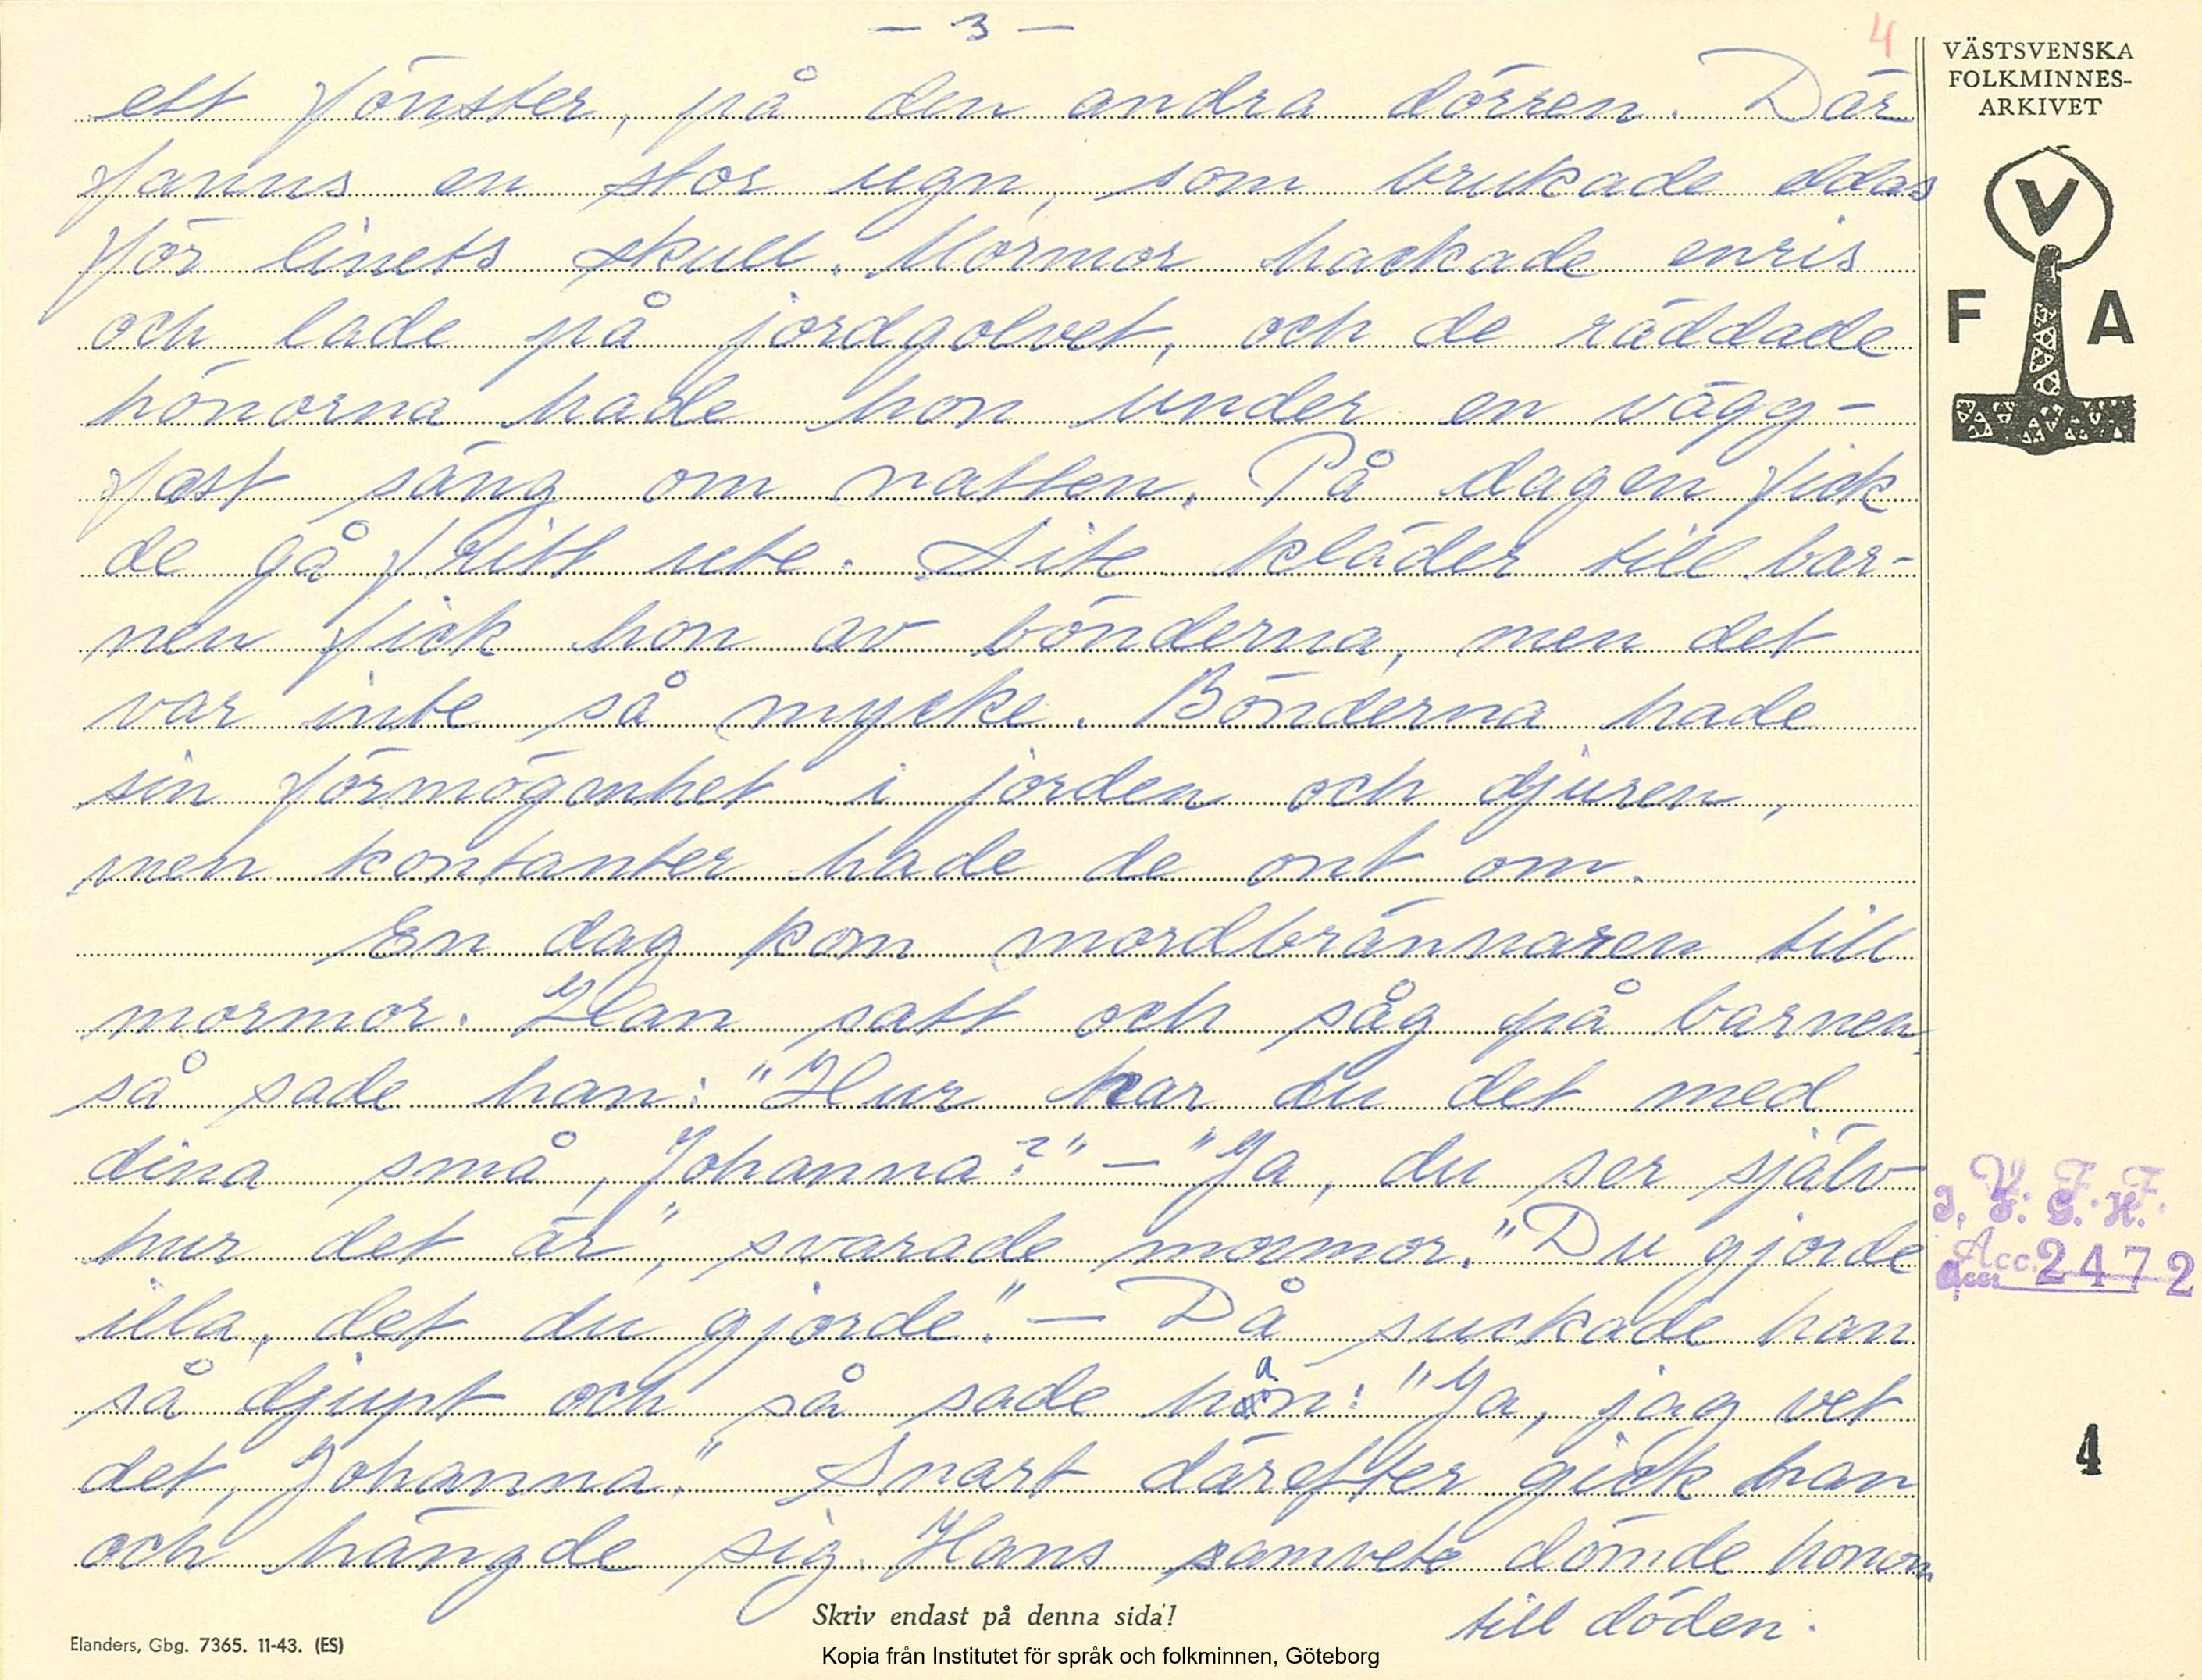 — 3 —
4
ett fönster, på den andra dörren. Där
fanns en stor ugn, som brukade eldas
för linets skull. Mormor hackade enris
och lade på jordgolvet, och de räddade
hönorna hade hon under en vägg-
fast säng om natten. På dagen fick
de gå fritt ute. Lite kläder till bar-
nen fick hon av bönderna, men det
var inte så mycke. Bönderna hade
sin förmögenhet i jorden och djuren,
men kontanter hade de ont om.
En dag kom mordbrännaren till
mormor. Han satt och såg på barnen,
så sade han: "Hur har du det med
dina små, Johanna?" — "Ja, du ser själv
hur det är", svarade mormor. "Du gjorde
illa, det du gjorde." — Då suckade han
så djupt och så sade han: "Ja, jag vet
det, Johanna." Snart därefter gick han
och hängde sig. Hans samvete dömde honom
till döden.
VÄSTSVENSKA
FOLKMINNES-
ARKIVET
V
F A
V. F. F.
I. F. G. H.
Acc. 2472
4
Skriv endast på denna sida!
Elanders, Gbg. 7365. 11-43. (ES)
Kopia från Institutet för språk och folkminnen, Göteborg